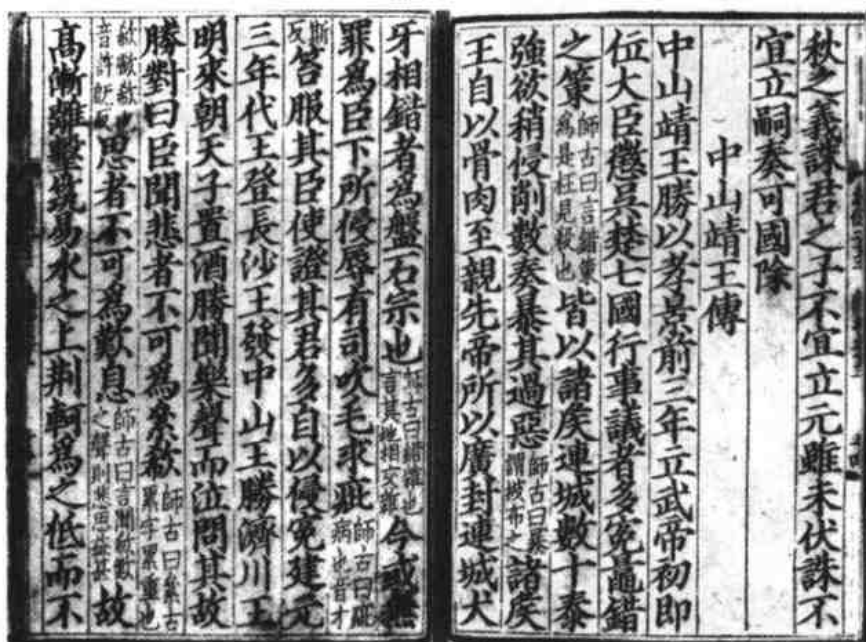 秋之義誅君之子不宜立元雖未伏誅不
宜立嗣奏可國除
中山靖王傳
中山靖王勝以孝景前三年立武帝初即
位大臣懲吳楚七國行事議者多冤鼂錯
之策師古曰言錯策為是枉見殺也皆以諸侯連城數十泰
強欲稍侵削數奏暴其過惡師古曰暴謂披布之諸侯
王自以骨肉至親先帝所以廣封連城犬
牙相錯者為盤石宗也師古曰錯雜也言其地相交雜今或無
罪為臣下所侵辱有司吹毛求疵師古曰疵病也音才
斯反笞服其臣使證其君多自以侵冤建元
三年代王登長沙王發中山王勝濟川王
明來朝天子置酒勝聞樂聲而泣問其故
勝對曰臣聞悲者不可為絫欷師古曰絫古累字累重也
欷歔欷也音許既反思者不可為歎息師古曰言聞欷歎之聲則其思益甚故
高漸離擊筑易水之上荊軻為之低而不